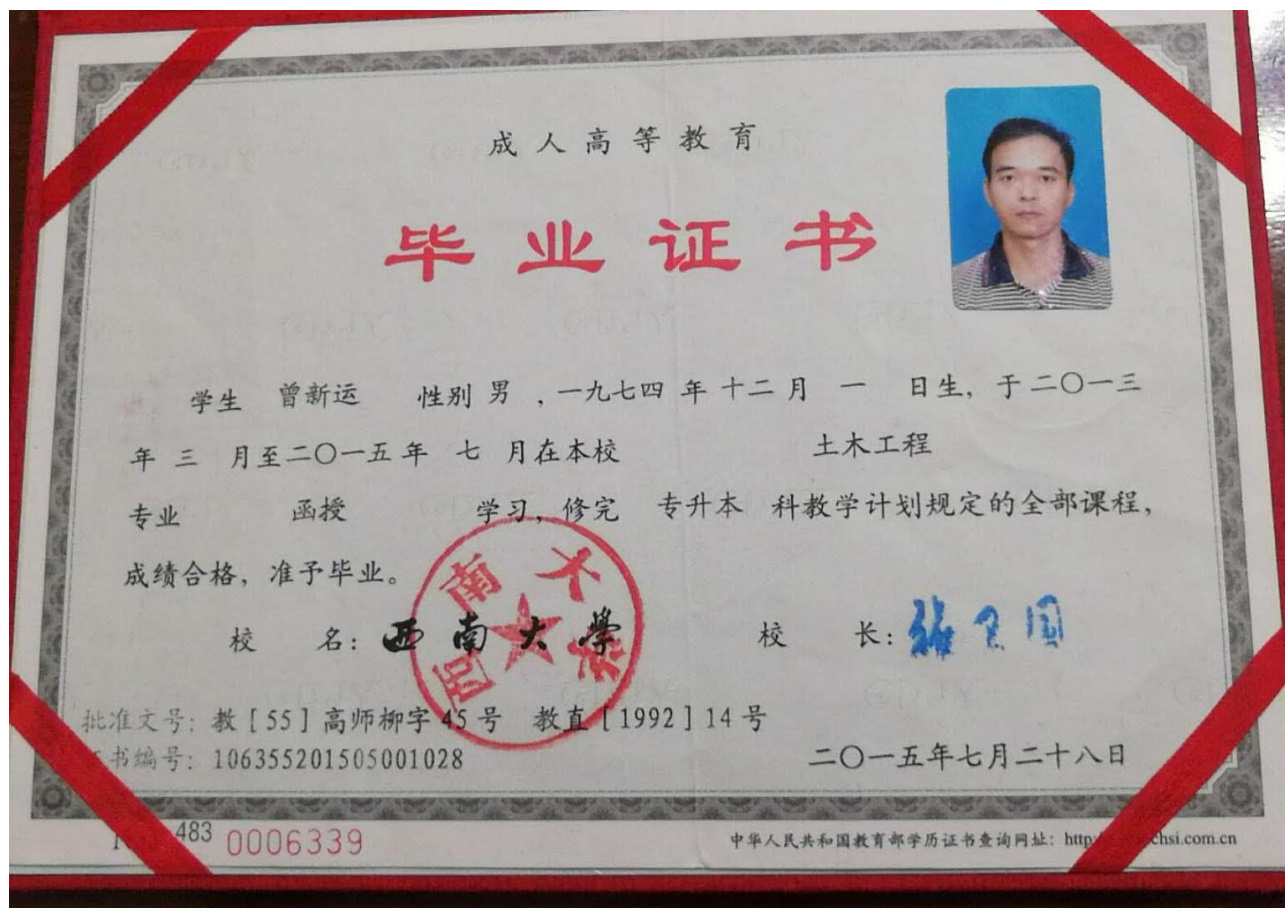 成人高等教育
毕业证书
学生 曾新运 性别 男 ,一九七四 年 十二 月 一 日生, 于二〇一三
年 三 月至二〇一五年 七 月在本校 土木工程
专业 函授 学习, 修完 专升本 科教学计划规定的全部课程,
成绩合格, 准予毕业。
校 名: 西南大學 校 长: 张卫国
西南大学
批准文号: 教[55]高师柳字45号 教直[1992]14号
书编号: 106355201505001028
二〇一五年七月二十八日
483 0006339
中华人民共和国教育部学历证书查询网址: http chsi.com.cn